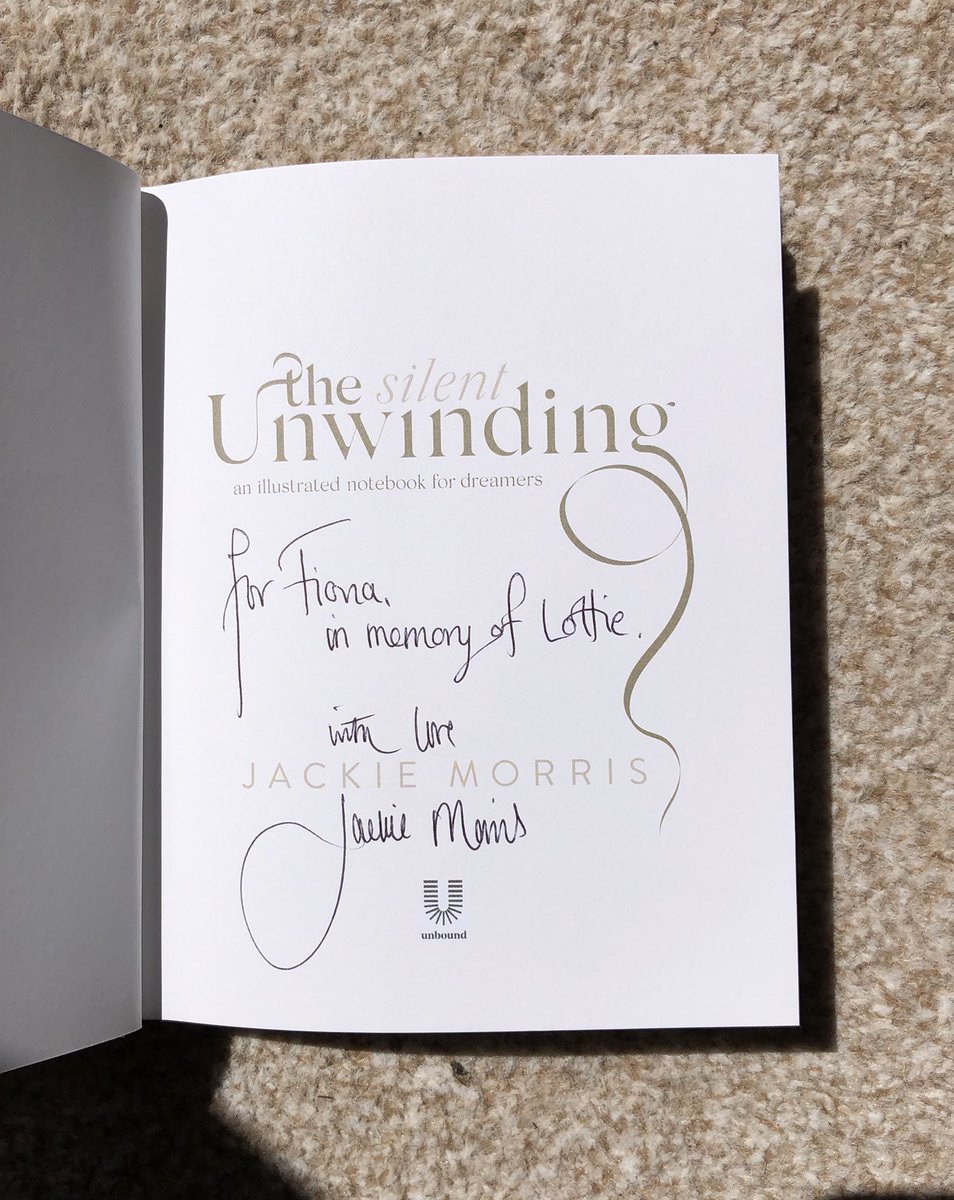 the silent
Unwinding
an illustrated notebook for dreamers
for Fiona.
in memory of Lottie.
with love
JACKIE MORRIS
Jackie Morris
unbound